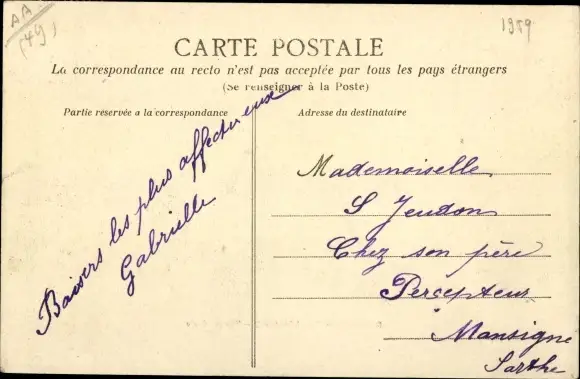 AA
(49)
1959
CARTE POSTALE
La correspondance au recto n'est pas acceptée par tous les pays étrangers
(Se renseigner à la Poste)
Partie reservée a la correspondance
Baisers les plus affectueux
Gabrielle
Adresse du destinataire
Mademoiselle
S Jeudon
Chez son père
Percepteur
Mansigné
Sarthe